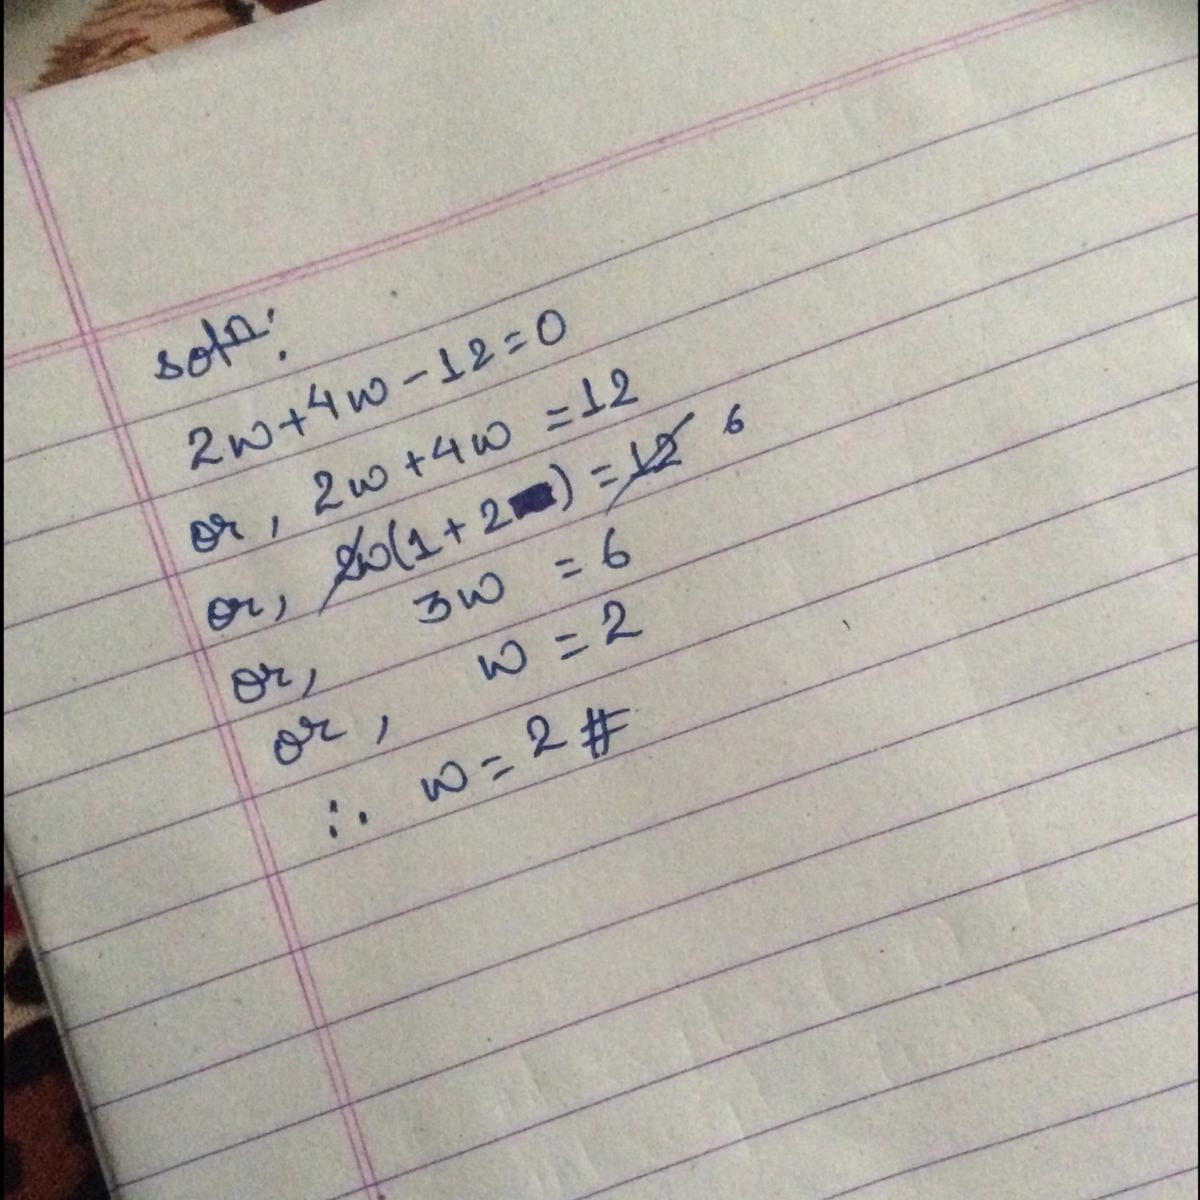 soln:
2w+4w-12=0
or, 2w+4w =12
or, 2w(1+2) =12 6
or, 3w =6
or, w =2
∴ w=2#